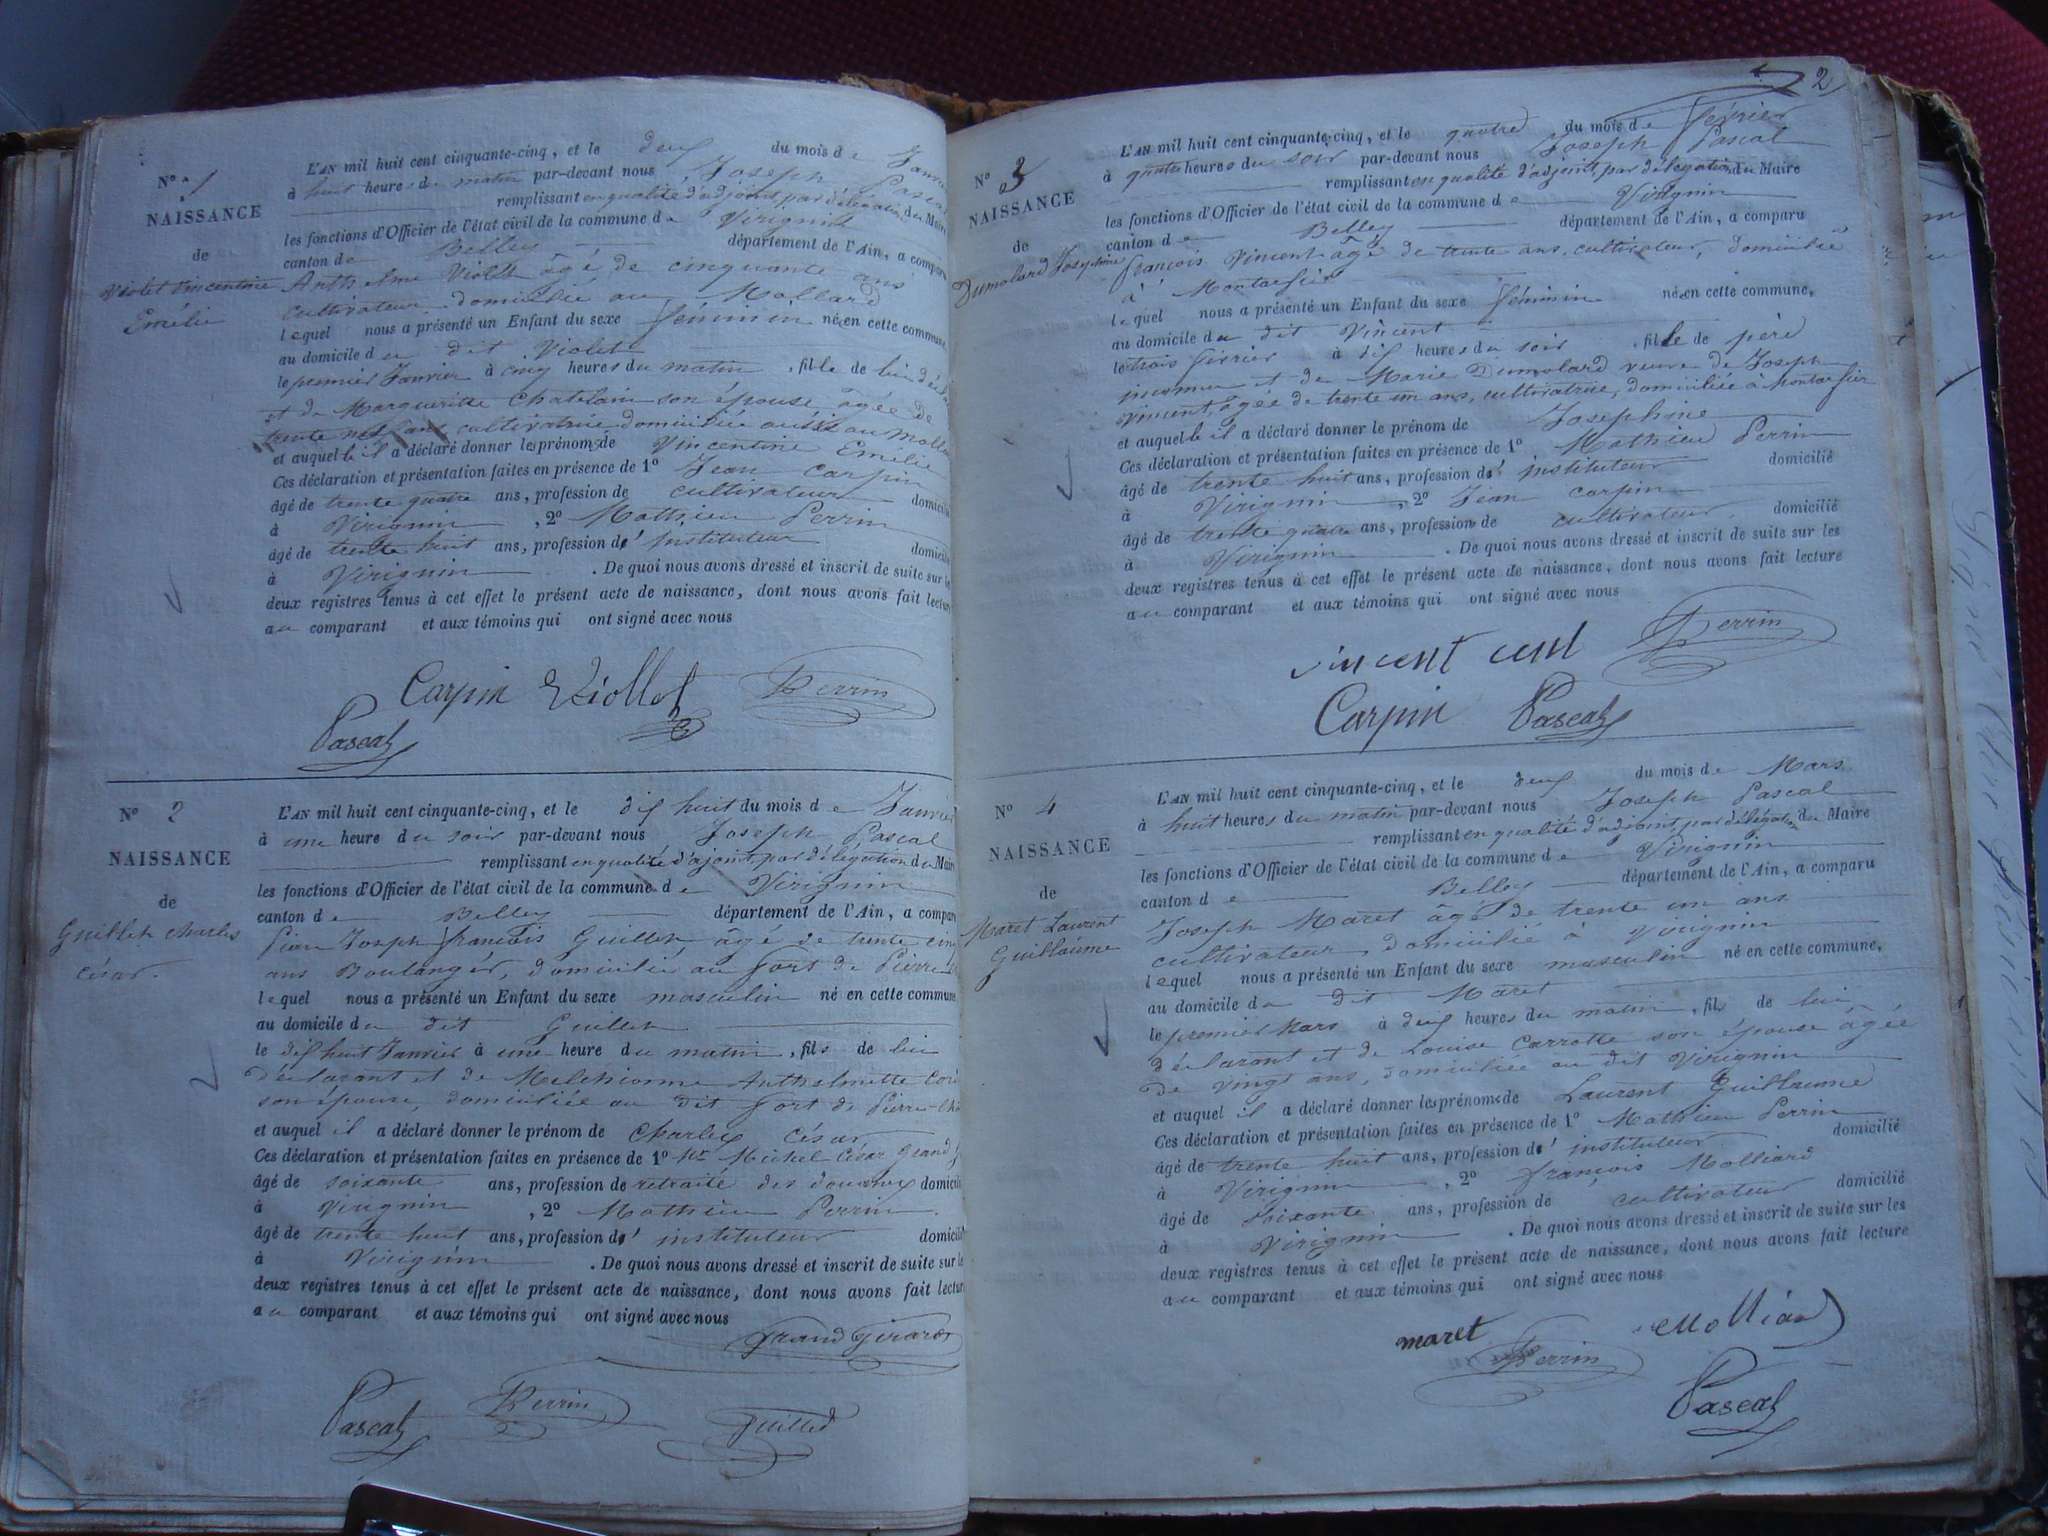 N° 1
NAISSANCE
de
Violet Vincentine
Emélie
L'AN mil huit cent cinquante-cinq, et le deux du mois de Janvier
à huit heures du matin par-devant nous Joseph Pascal
remplissant en qualité d'adjoint, par délégation du Maire
les fonctions d'Officier de l'état civil de la commune de Virignin
canton de Belley département de l'Ain, a comparu
Anthelme Violet âgé de cinquante ans
cultivateur domicilié au Mollard
lequel nous a présenté un Enfant du sexe féminin né en cette commune,
au domicile du dit Violet
le premier Janvier à cinq heures du matin, fille de lui
et de Marguerite Chatelain son épouse âgée de
trente neuf ans cultivatrice domiciliée aussi au Mollard
et auquelle il a déclaré donner les prénoms de Vincentine Emélie
Ces déclaration et présentation faites en présence de 1° Jean Carpin
âgé de trente quatre ans, profession de cultivateur domicilié
à Virignin, 2° Mathieu Perrin
âgé de trente huit ans, profession d'instituteur domicilié
à Virignin. De quoi nous avons dressé et inscrit de suite sur les
deux registres tenus à cet effet le présent acte de naissance, dont nous avons fait lecture
au comparant et aux témoins qui ont signé avec nous
Carpin Viollet Perrin
Pascal
N° 2
NAISSANCE
de
Guillet Charles
César.
L'AN mil huit cent cinquante-cinq, et le dix huit du mois de Janvier
à une heure du soir par-devant nous Joseph Pascal
remplissant en qualité d'ajoint, par délégation du Maire
les fonctions d'Officier de l'état civil de la commune de Virignin
canton de Belley département de l'Ain, a comparu
Joseph françois Guillet âgé de trente cinq
ans Boulanger, domicilié au fort de Pierre
lequel nous a présenté un Enfant du sexe masculin né en cette commune
au domicile du dit Guillet
le dix huit Janvier à une heure du matin, fils de lui
déclarant et de Melchionne Anthelmette
son épouse, domiciliée au dit fort de Pierre-Châ
et auquel il a déclaré donner le prénom de Charles César
Ces déclaration et présentation faites en présence de 1° Mr Michel César Grand
âgé de soixante ans, profession de retraité des douanes domicilié
à Virignin, 2° Mathieu Perrin
âgé de trente huit ans, profession d'instituteur domicilié
à Virignin. De quoi nous avons dressé et inscrit de suite sur les
deux registres tenus à cet effet le présent acte de naissance, dont nous avons fait lecture
au comparant et aux témoins qui ont signé avec nous
Grand Girard
Pascal Perrin Guillet
2
N° 3
NAISSANCE
de
Dumolard Josephine
L'AN mil huit cent cinquante-cinq, et le quatre du mois de février
à quatre heures du soir par-devant nous Joseph Pascal
remplissant en qualité d'adjoint, par délégation du Maire
les fonctions d'Officier de l'état civil de la commune de Virignin
canton de Belley département de l'Ain, a comparu
françois Vincent âgé de trente ans, cultivateur, domicilié
à Montarfier
lequel nous a présenté un Enfant du sexe féminin né en cette commune,
au domicile du dit Vincent
le trois février à dix heures du soir, fille de père
inconnu et de Marie Dumolard veuve de Joseph
Vincent, âgée de trente un ans, cultivatrice, domiciliée à Montarfier
et auquelle il a déclaré donner le prénom de Josephine
Ces déclaration et présentation faites en présence de 1° Mathieu Perrin
âgé de trente huit ans, profession d'instituteur domicilié
à Virignin, 2° Jean Carpin
âgé de trente quatre ans, profession de cultivateur domicilié
à Virignin. De quoi nous avons dressé et inscrit de suite sur les
deux registres tenus à cet effet le présent acte de naissance, dont nous avons fait lecture
au comparant et aux témoins qui ont signé avec nous
vincent Perrin
Carpin Pascal
N° 4
NAISSANCE
de
Maret Laurent
Guillaume
L'AN mil huit cent cinquante-cinq, et le deux du mois de Mars
à huit heures du matin par-devant nous Joseph Pascal
remplissant en qualité d'adjoint, par délégation du Maire
les fonctions d'Officier de l'état civil de la commune de Virignin
canton de Belley département de l'Ain, a comparu
Joseph Maret âgé de trente un ans
cultivateur, domicilié à Virignin
lequel nous a présenté un Enfant du sexe masculin né en cette commune,
au domicile du dit Maret
le premier Mars à deux heures du matin, fils de lui
déclarant et de Louise Carrotte son épouse âgée
de vingt ans, domiciliée au dit Virignin
et auquel il a déclaré donner les prénoms de Laurent Guillaume
Ces déclaration et présentation faites en présence de 1° Mathieu Perrin
âgé de trente huit ans, profession d'instituteur domicilié
à Virignin, 2° françois Molliard
âgé de soixante ans, profession de cultivateur domicilié
à Virignin. De quoi nous avons dressé et inscrit de suite sur les
deux registres tenus à cet effet le présent acte de naissance, dont nous avons fait lecture
au comparant et aux témoins qui ont signé avec nous
maret Molliard
Perrin
Pascal